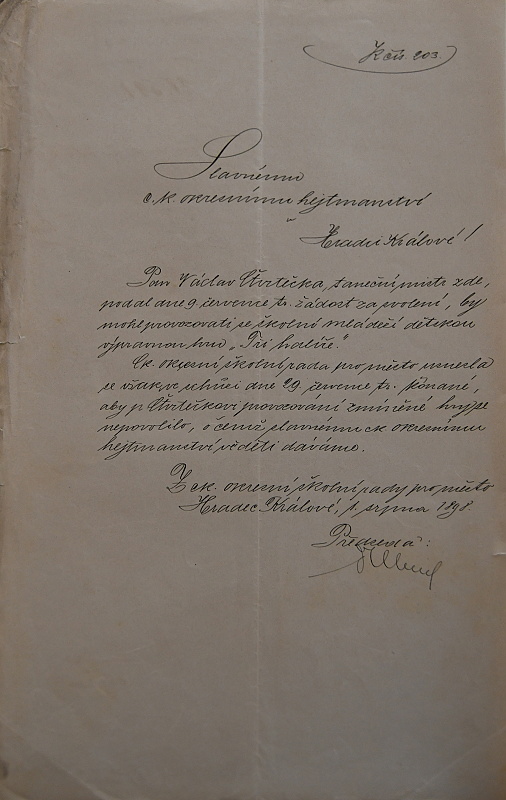 K čís. 203.
Slavnému
c. k. okresnímu hejtmanství
v
Hradci Králové!
Pan Václav Čtvrtečka, taneční mistr zde,
podal dne 9. července t.r. žádost za svolení, by
mohl provozovati se školní mládeží dětskou
výpravnou hru „Tři halíře."
C.k. okresní školní rada pro město usnesla
se však ve schůzi dne 29. července t.r. konané,
aby p. Čtvrtečkovi provozování zmíněné hry se
nepovolilo, o čemž slavnému ck okresnímu
hejtmanství věděti dáváme.
Z ck. okresní školní rady pro město
Hradec Králové, 1. srpna 1898
Předseda: